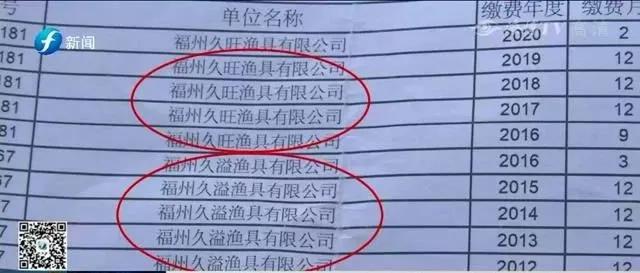 号 单位名称 缴费年度 缴费月
新闻
高清
181 福州久旺渔具有限公司 2020 2
81 福州久旺渔具有限公司 2019 12
181 福州久旺渔具有限公司 2018 12
81 福州久旺渔具有限公司 2017 12
81 福州久旺渔具有限公司 2016 9
67 福州久溢渔具有限公司 2016 3
67 福州久溢渔具有限公司 2015 12
7 福州久溢渔具有限公司 2014 12
7 福州久溢渔具有限公司 2013 12
福州久溢渔具有限公司 2012 12